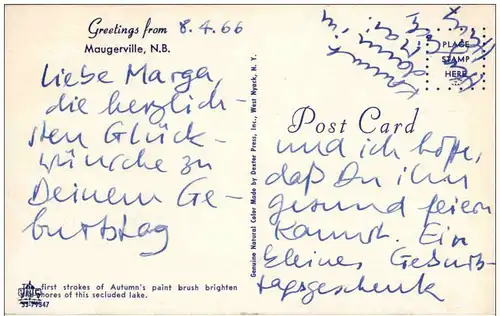 Greetings from 8.4.66
Maugerville, N.B.
Liebe Marga,
die herzlich-
sten Glück-
wünsche zu
Deinem Ge-
burtstag
The first strokes of Autumn's paint brush brighten
the shores of this secluded lake.
Genuine Natural Color Made by Dexter Press, Inc., West Nyack, N. Y.
PLACE
STAMP
HERE
Post Card
und ich hoffe,
daß Du ihn
gesund feiern
kannst. Ein
kleines Geburts-
tagsgeschenk
kommt